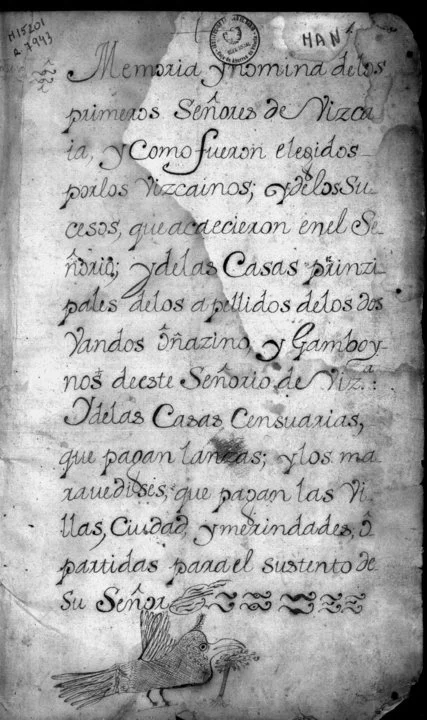 M 15201
R 7943
MAN
Memoria y nomina delos
primeros Señores de Vizca
ia, y Como fueron elegidos
porlos Vizcainos; ydelos Su
cesos, que acaecieron enel Se
ñorio; ydelas Casas prinzi
pales delos apellidos delos dos
Vandos Oñazino, y Gamboy
nos deeste Señorio de Viz.ª:
Ydelas Casas Censuarias,
que pagan lanzas; ylos ma
ravedises, que pagan las Vi
llas, Ciudad, ymerindades, ô
partidas parael sustento de
Su Señor